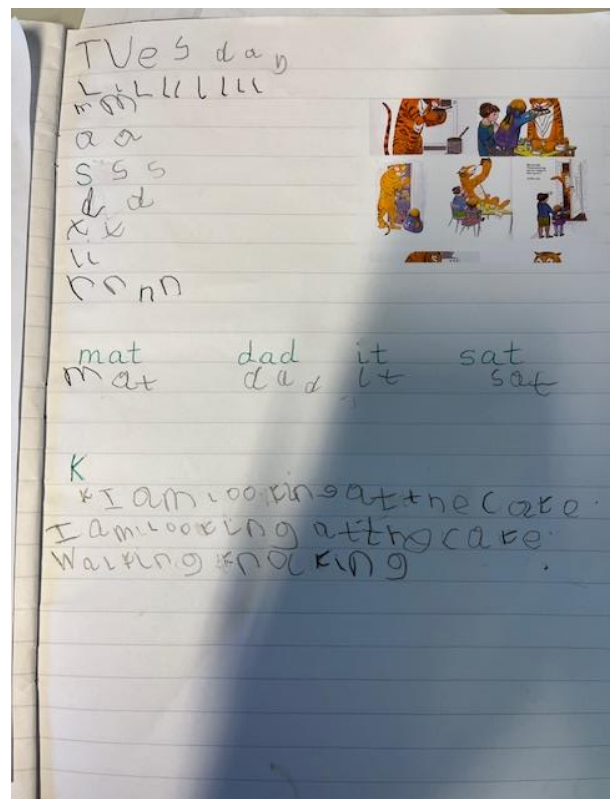 TUesday
L i L l l l l l l
m m
a a
s s s
d d
t t
i i
n n n n
mat dad it sat
mat dad it sat
K
k I am looking at the cake.
I am looking at the cake.
Walking knocking